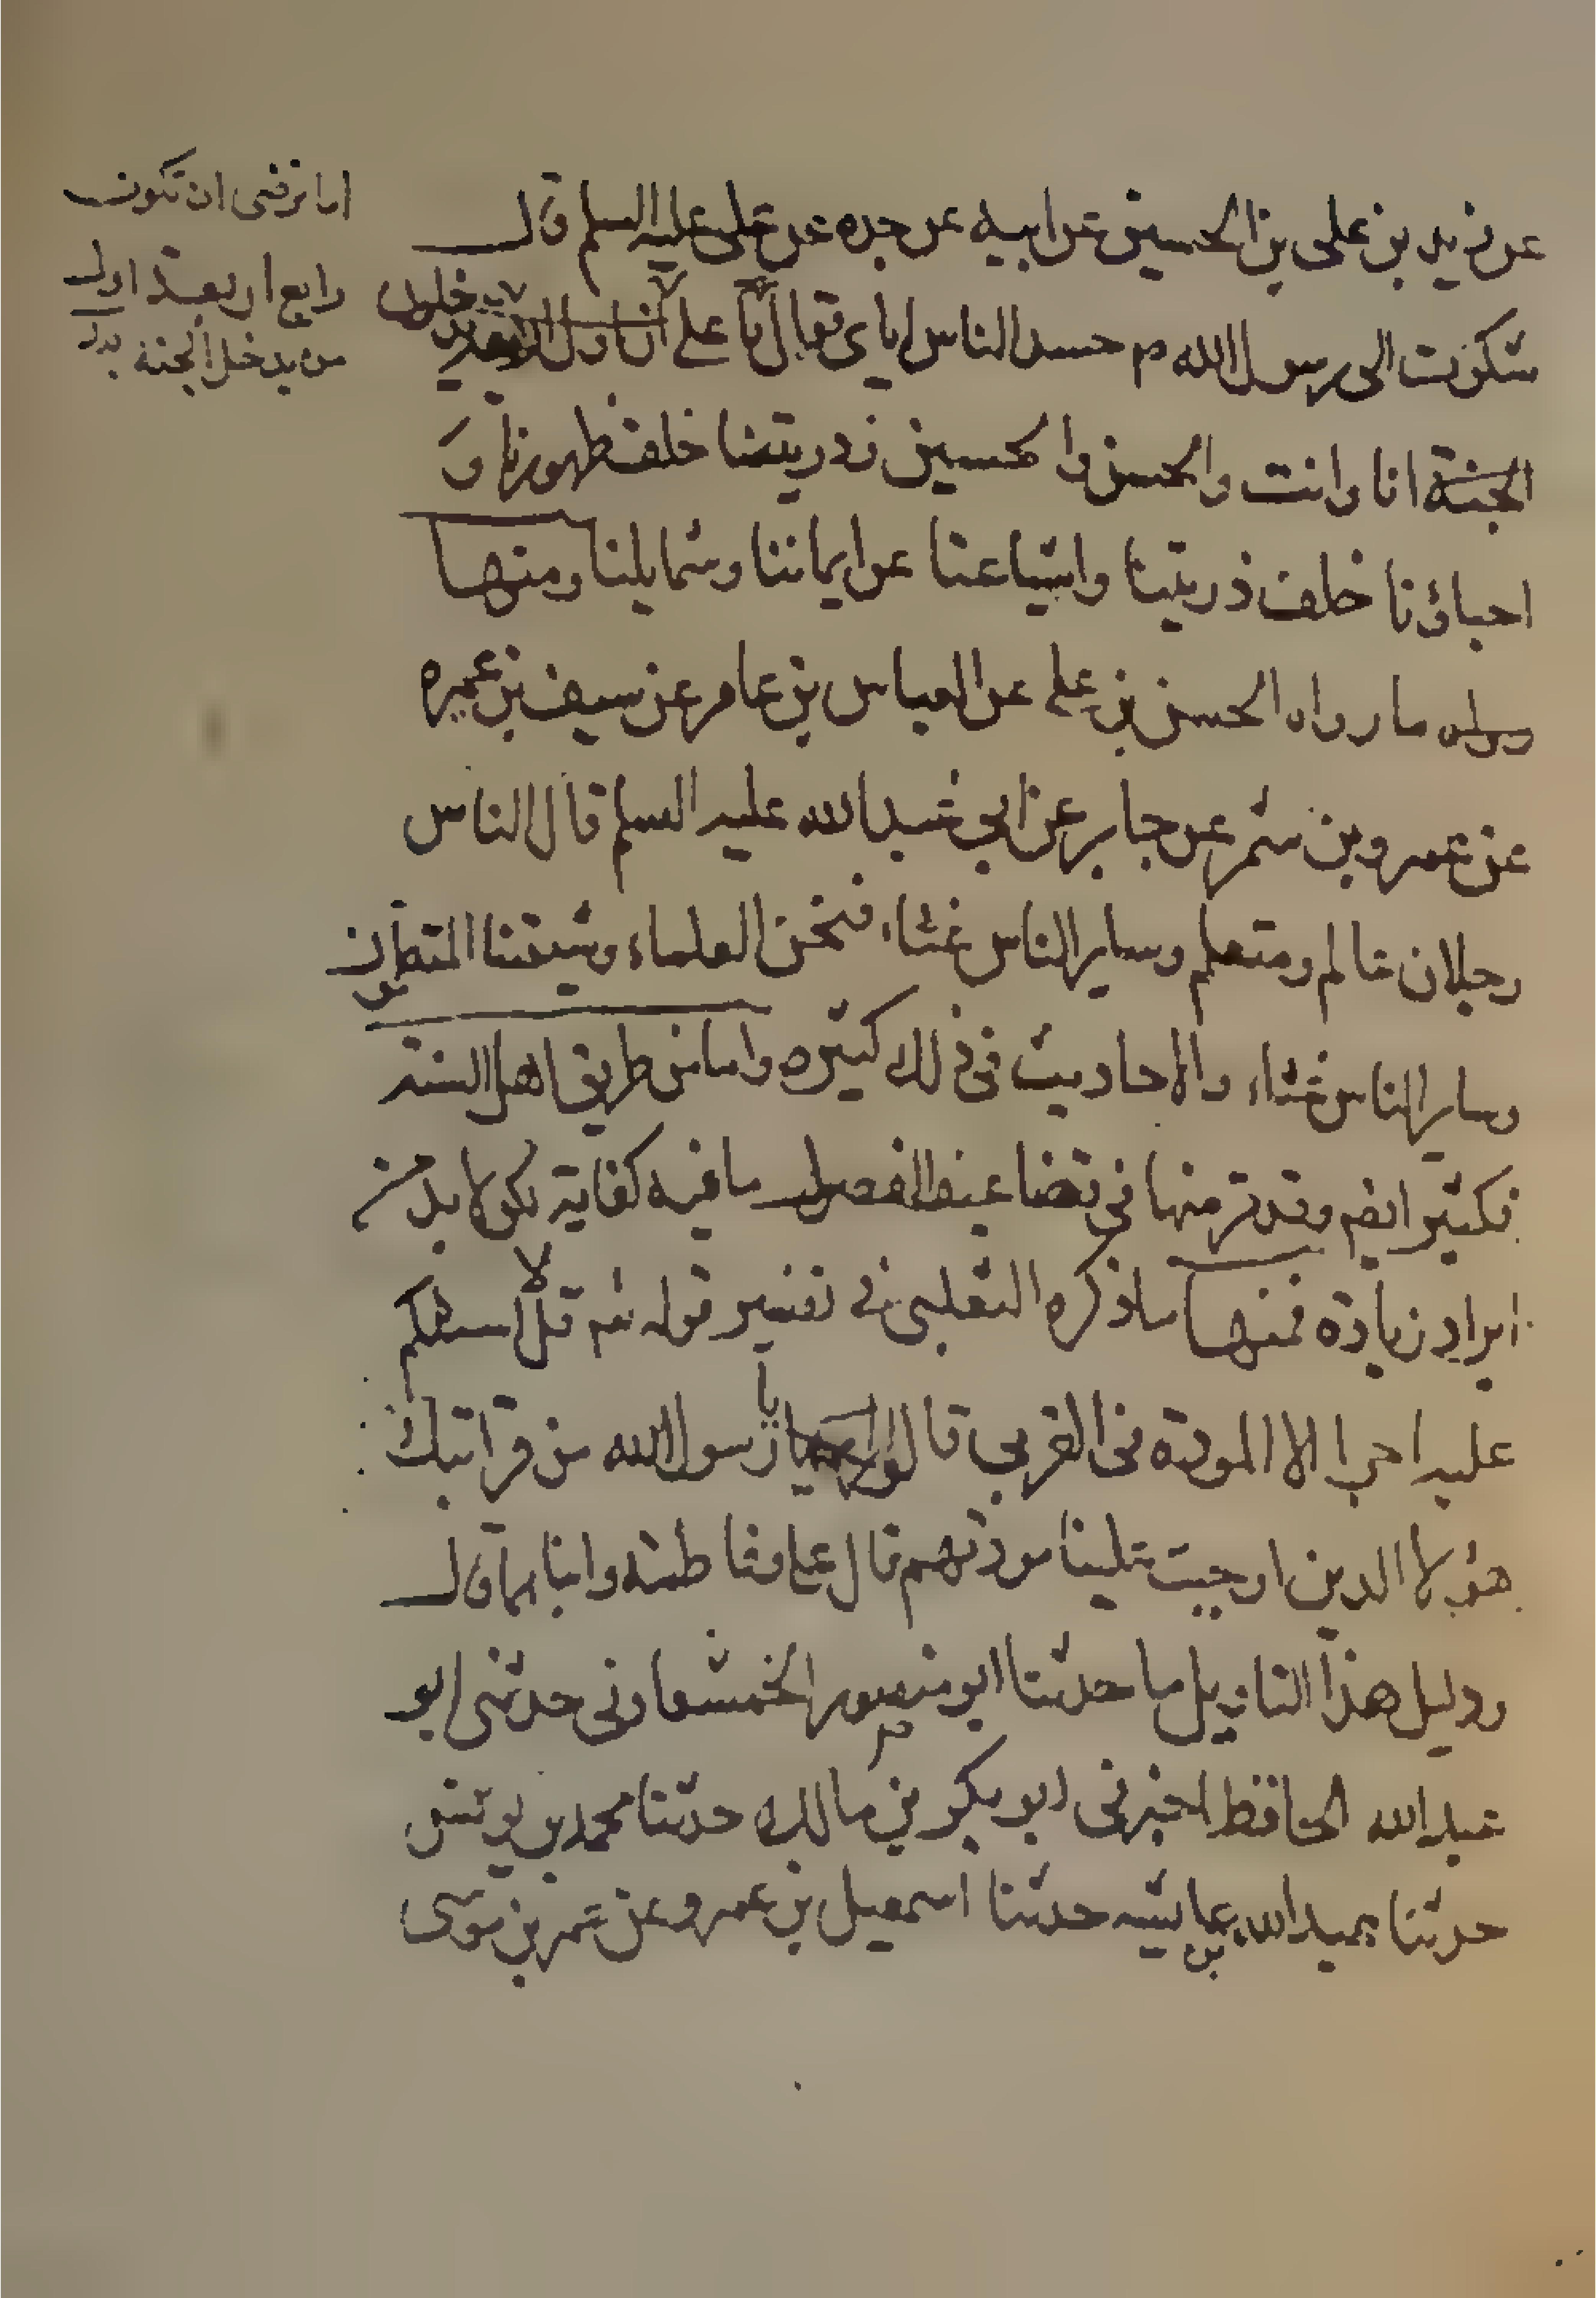 عن زيد بن على بن الحسين عن ابيه عن جده عن على عليه السلم قال
شكوت الى رسول الله ص حسد الناس اياى فقال يا على ان اول الاربعة يدخلون
الجنة انا وانت والحسن والحسين وذريتنا خلف ظهورنا و
احباؤنا خلف ذريتنا واشياعنا عن ايماننا وشمايلنا ومنها
ما رواه الحسن بن على عن العباس بن عامر عن سيف بن عميره
عن عمرو بن شمر عن جابر عن ابي عبد الله عليه السلم قال الناس
رجلان عالم ومتعلم وساير الناس غثاء فنحن العلماء وشيعتنا المتعلمون
وساير الناس غثاء والاحاديث فى ذلك كثيره واما من طريق اهل السنة
فكثير ايضم وقد مر منها فى تضاعيف الفصول ما فيه كفاية لكن لا بد من
ايراد زيادة فمنها ما ذكره الثعلبى فى تفسير قوله تع قل لا اسئلكم
عليه اجرا الا المودة فى القربى قالوا يا رسول الله من قرابتك
هؤلا الذين اوجبت علينا مودتهم قال على وفاطمة وابناهما قال
ودليل هذا التاويل ما حدثنا ابو منصور الخمشاونى حدثنى ابو
عبد الله الحافظ اخبرنى ابو بكر بن مالك حدثنا محمد بن يونس
حدثنا عبيد الله بن عايشه حدثنا اسمعيل بن عمرو عن عمر بن موسى
اما ترضى ان تكون
رابع اربعة اول
من يدخل الجنة بدل